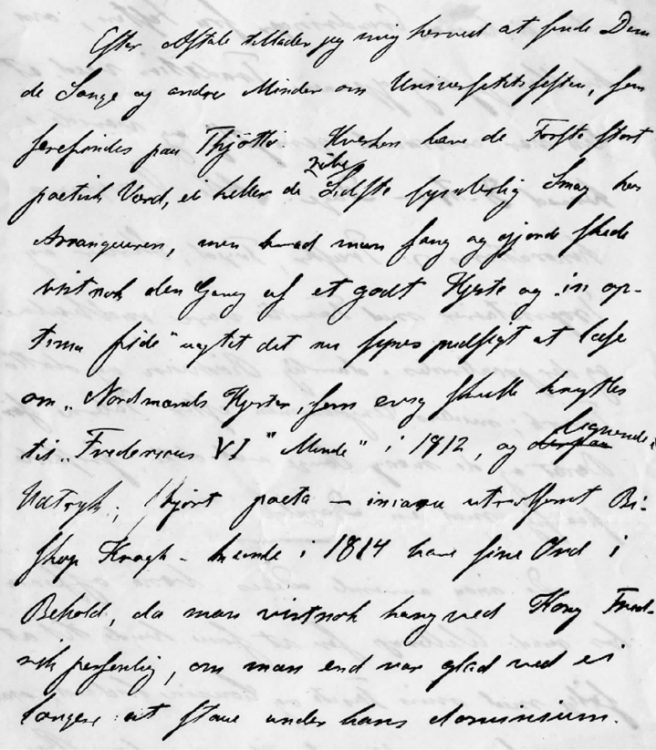 Efter Aftale tillader jeg mig herved at sende Dem
de Sange og andre Minder om Universitetsfesten, som
forefindes paa Thjøttø. Hverken have de Første stort
poetisk Værd, ei heller de Sidste synderlig Smag hos
Arrangeuren, men hvad man sang og gjorde skede
vistnok den Gang af et godt Hjerte og "in op-
tima fide" uagtet det nu synes pudsigt at læse
om "Nordmænds Hjerter, som evig skulle knyttes
til "Fredericus VI" Minde" i 1912, og lignende
Udtryk; Hjort poeta
skop Krogh - kunde i 1814 have sine Ord i
Behold, da man vistnok hang ved Kong Fred-
rik personlig, om man end var glad ved ei
længere at staae under hans dominium.